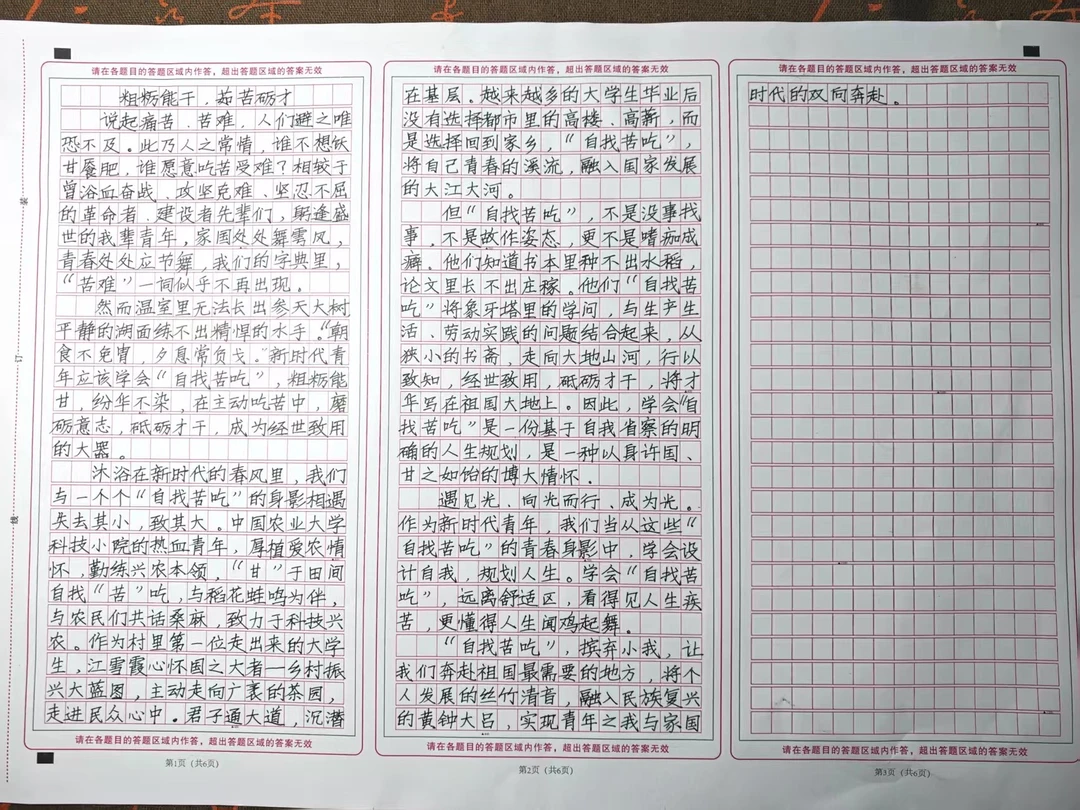 请在各题目的答题区域内作答，超出答题区域的答案无效
粗粝能干，茹苦砺才
说起痛苦、苦难，人们避之唯
恐不及。此乃人之常情，谁不想饫
甘餍肥，谁愿意吃苦受难？相较于
曾浴血奋战、攻坚克难、坚忍不屈
的革命者、建设者先辈们，躬逢盛
世的我辈青年，家国处处舞雩风，
青春处处应节舞，我们的字典里，
“苦难”一词似乎不再出现。
然而温室里无法长出参天大树
平静的湖面练不出精悍的水手。“朝
食不免胄，夕息常负戈。”新时代青
年应该学会“自找苦吃”，粗粝能
甘，纷华不染，在主动吃苦中，磨
砺意志，砥砺才干，成为经世致用
的大器。
沐浴在新时代的春风里，我们
与一个个“自找苦吃”的身影相遇
失去其小，致其大。中国农业大学
科技小院的热血青年，厚植爱农情
怀，勤练兴农本领，“甘”于田间
自找“苦”吃，与稻花蛙鸣为伴，
与农民们共话桑麻，致力于科技兴
农。作为村里第一位走出来的大学
生，江雪霞心怀国之大者—乡村振
兴大蓝图，主动走向广袤的茶园，
走进民众心中。君子通大道，沉潜
请在各题目的答题区域内作答，超出答题区域的答案无效
第1页（共6页）
请在各题目的答题区域内作答，超出答题区域的答案无效
在基层。越来越多的大学生毕业后
没有选择都市里的高楼、高薪，而
是选择回到家乡，“自找苦吃”，
将自己青春的溪流，融入国家发展
的大江大河。
但“自找苦吃”，不是没事找
事，不是故作姿态，更不是嗜痂成
癖。他们知道书本里种不出水稻，
论文里长不出庄稼。他们“自找苦
吃”将象牙塔里的学问，与生产生
活、劳动实践的问题结合起来，从
狭小的书斋，走向大地山河，行以
致知，经世致用，砥砺才干，将才
华写在祖国大地上。因此，学会“自
找苦吃”是一份基于自我省察的明
确的人生规划，是一种以身许国、
甘之如饴的博大情怀。
遇见光、向光而行、成为光。
作为新时代青年，我们当从这些“
自找苦吃”的青春身影中，学会设
计自我，规划人生。学会“自找苦
吃”，远离舒适区，看得见人生疾
苦，更懂得人生闻鸡起舞。
“自找苦吃”，摈弃小我，让
我们奔赴祖国最需要的地方，将个
人发展的丝竹清音，融入民族复兴
的黄钟大吕，实现青年之我与家国
请在各题目的答题区域内作答，超出答题区域的答案无效
第2页（共6页）
请在各题目的答题区域内作答，超出答题区域的答案无效
时代的双向奔赴。
请在各题目的答题区域内作答，超出答题区域的答案无效
第3页（共6页）
装
订
线